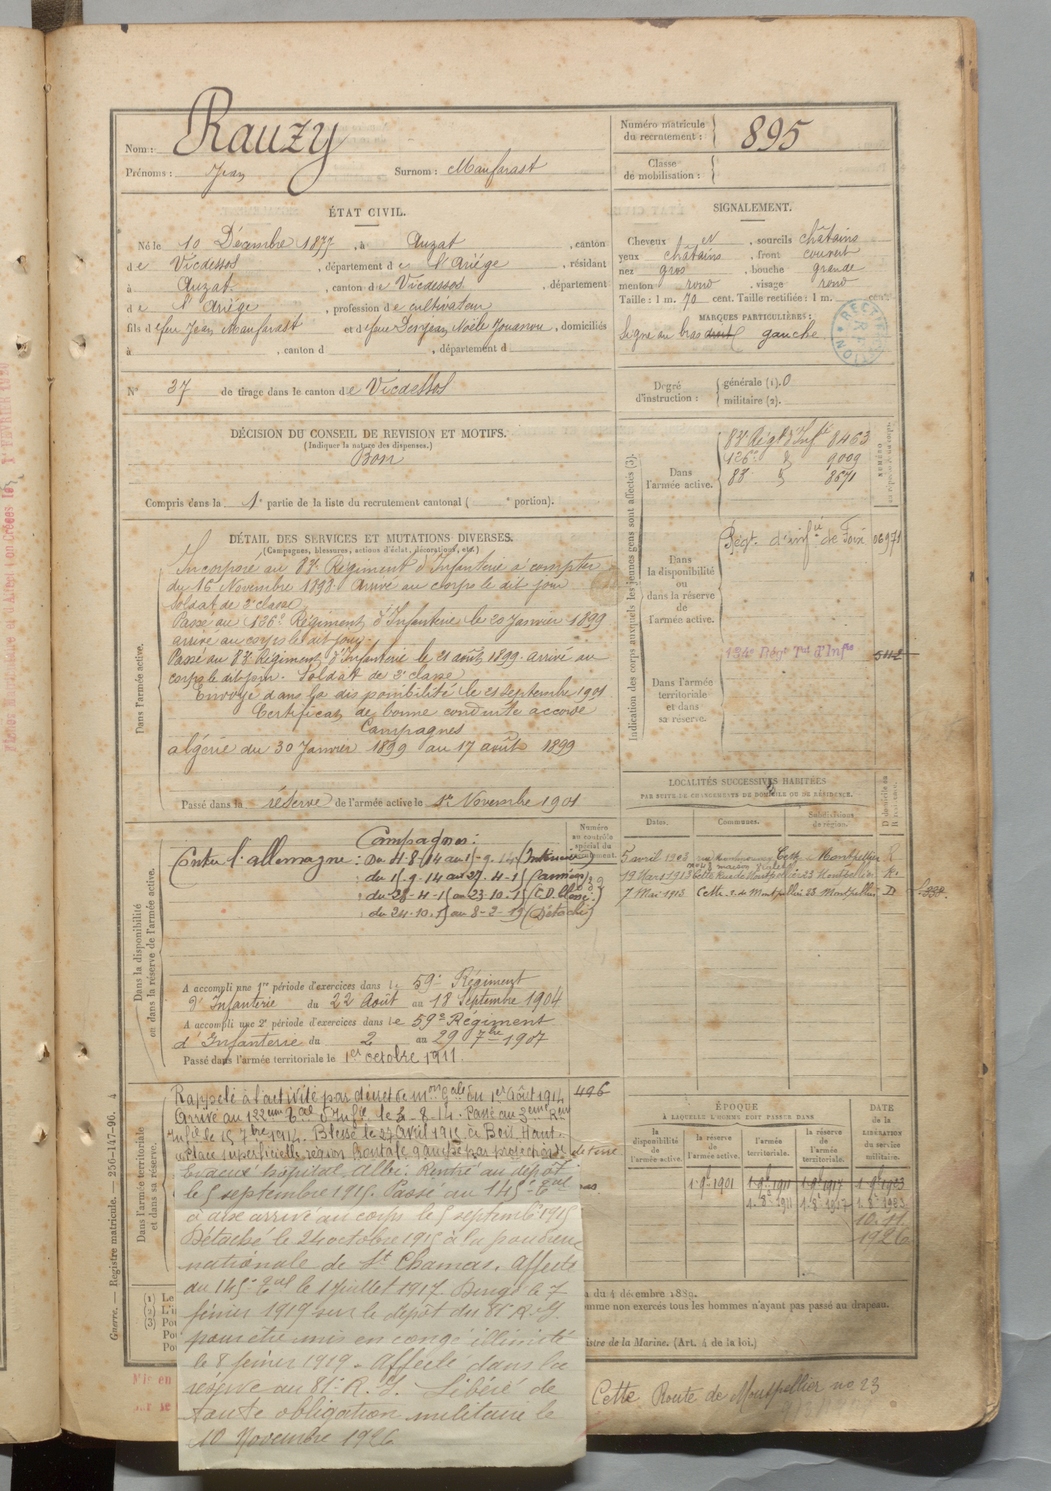 Nom : Rauzy
Prénoms : Jean Surnom : Manfarast
Numéro matricule du recrutement : 895
Classe de mobilisation :
ÉTAT CIVIL.
Né le 10 Décembre 1877, à Auzat, canton
de Vicdessos, département de l'Ariége, résidant
à Auzat, canton de Vicdessos, département
de l'Ariége, profession de cultivateur
fils de feu Jean Manfarast et de feue Desjean Noële, domiciliés
à , canton d , département d
SIGNALEMENT.
Cheveux et , sourcils châtains
yeux châtains, front couvert
nez gros, bouche grande
menton rond, visage rond
Taille : 1 m. 70 cent. Taille rectifiée : 1 m. cent.
MARQUES PARTICULIÈRES :
Signe au bras droit gauche
RECTIFICATION
N° 37 de tirage dans le canton de Vicdessos
Degré d'instruction : générale (1). 0
militaire (2).
DÉCISION DU CONSEIL DE REVISION ET MOTIFS.
(Indiquer la nature des dispenses.)
Bon
Compris dans la 1e partie de la liste du recrutement cantonal ( e portion).
Indication des corps auxquels les jeunes gens sont affectés (3).
Dans l'armée active.
83e Régt d'Infie 8463
126e d° 9009
83 d° 8671
Dans la disponibilité ou dans la réserve de l'armée active.
Régt. d'infie de Foix 06971
Dans l'armée territoriale et dans sa réserve.
5112
DÉTAIL DES SERVICES ET MUTATIONS DIVERSES.
(Campagnes, blessures, actions d'éclat, décorations, etc.)
Dans l'armée active.
Incorporé au 83e Régiment d'Infanterie à compter
du 16 Novembre 1898. Arrivé au corps le dit jour
Soldat de 2e classe
Passé au 126e Régiment d'Infanterie le 20 Janvier 1899
arrivé au corps le dit jour.
Passé au 83e Régiment d'Infanterie le 21 août 1899. arrivé au
corps le dit jour. Soldat de 2e classe
Envoyé dans la disponibilité le 21 septembre 1901
Certificat de bonne conduite accordé
Campagnes
Algérie du 30 Janvier 1899 au 17 août 1899
Passé dans la réserve de l'armée active le 1er Novembre 1901
LOCALITÉS SUCCESSIVES HABITÉES
PAR SUITE DE CHANGEMENTS DE DOMICILE OU DE RÉSIDENCE.
Dates. Communes. Subdivisions de région.
5 avril 1903 Cette Montpellier R
19 Mars 1913 Cette Rue de Montpellier 23 Montpellier R.
7 Mai 1913 Cette r. de Montpellier 23 Montpellier D
Dans la disponibilité ou dans la réserve de l'armée active.
Numéro au contrôle spécial du recrutement.
Campagnes :
Contre l'allemagne : Du 4-8-14 au 1-9-14 (Intérieur)
: du 1-9-14 au 27-4-15 (armées)
: du 28-4-15 au 23-10-15 (C.D.)
: du 24-10-15 au 8-2-19 (Détaché)
A accompli une 1re période d'exercices dans le 59e Régiment
d'Infanterie du 22 Août au 18 Septembre 1904
A accompli une 2e période d'exercices dans le 59e Régiment
d'Infanterie du 2 au 29 7bre 1907
Passé dans l'armée territoriale le 1er octobre 1911.
Dans l'armée territoriale et dans sa réserve.
Rappelé à l'activité par décret de mon gale du 1er Août 1914 496
Arrivé au 132eme tal d'Infie le 4-8-14. Passé au 3eme Rgt
Infie le 15 7bre 1914. Blessé le 27 Avril 1915 à Bois Haut
Plaie superficielle région frontale gauche par projection de terre
Evacué hôpital Albi. Rentré au dépôt
le 5 septembre 1915. Passé au 145e tal
à arrivé au corps le 5 septembre 1915
Détaché le 24 octobre 1915 à la poudrerie
nationale de St Chamas. Affecté
au 145e tal le 1 juillet 1917. Dirigé le 7
février 1919 sur le dépôt du 81e R.I.
pour être mis en congé illimité
le 8 février 1919. Affecté dans la
réserve au 81e R.I. Libéré de
toute obligation militaire le
10 Novembre 1926
ÉPOQUE
À LAQUELLE L'HOMME DOIT PASSER DANS
DATE de la LIBÉRATION du service militaire.
la disponibilité de l'armée active. la réserve de l'armée active. l'armée territoriale. la réserve de l'armée territoriale.
1-9e-1901
10.11.1926
du 4 décembre 1889.
comme non exercés tous les hommes n'ayant pas passé au drapeau.
Ministre de la Marine. (Art. 4 de la loi.)
Cette Route de Montpellier no 23
Guerre. — Registre matricule. — 256-147-96.